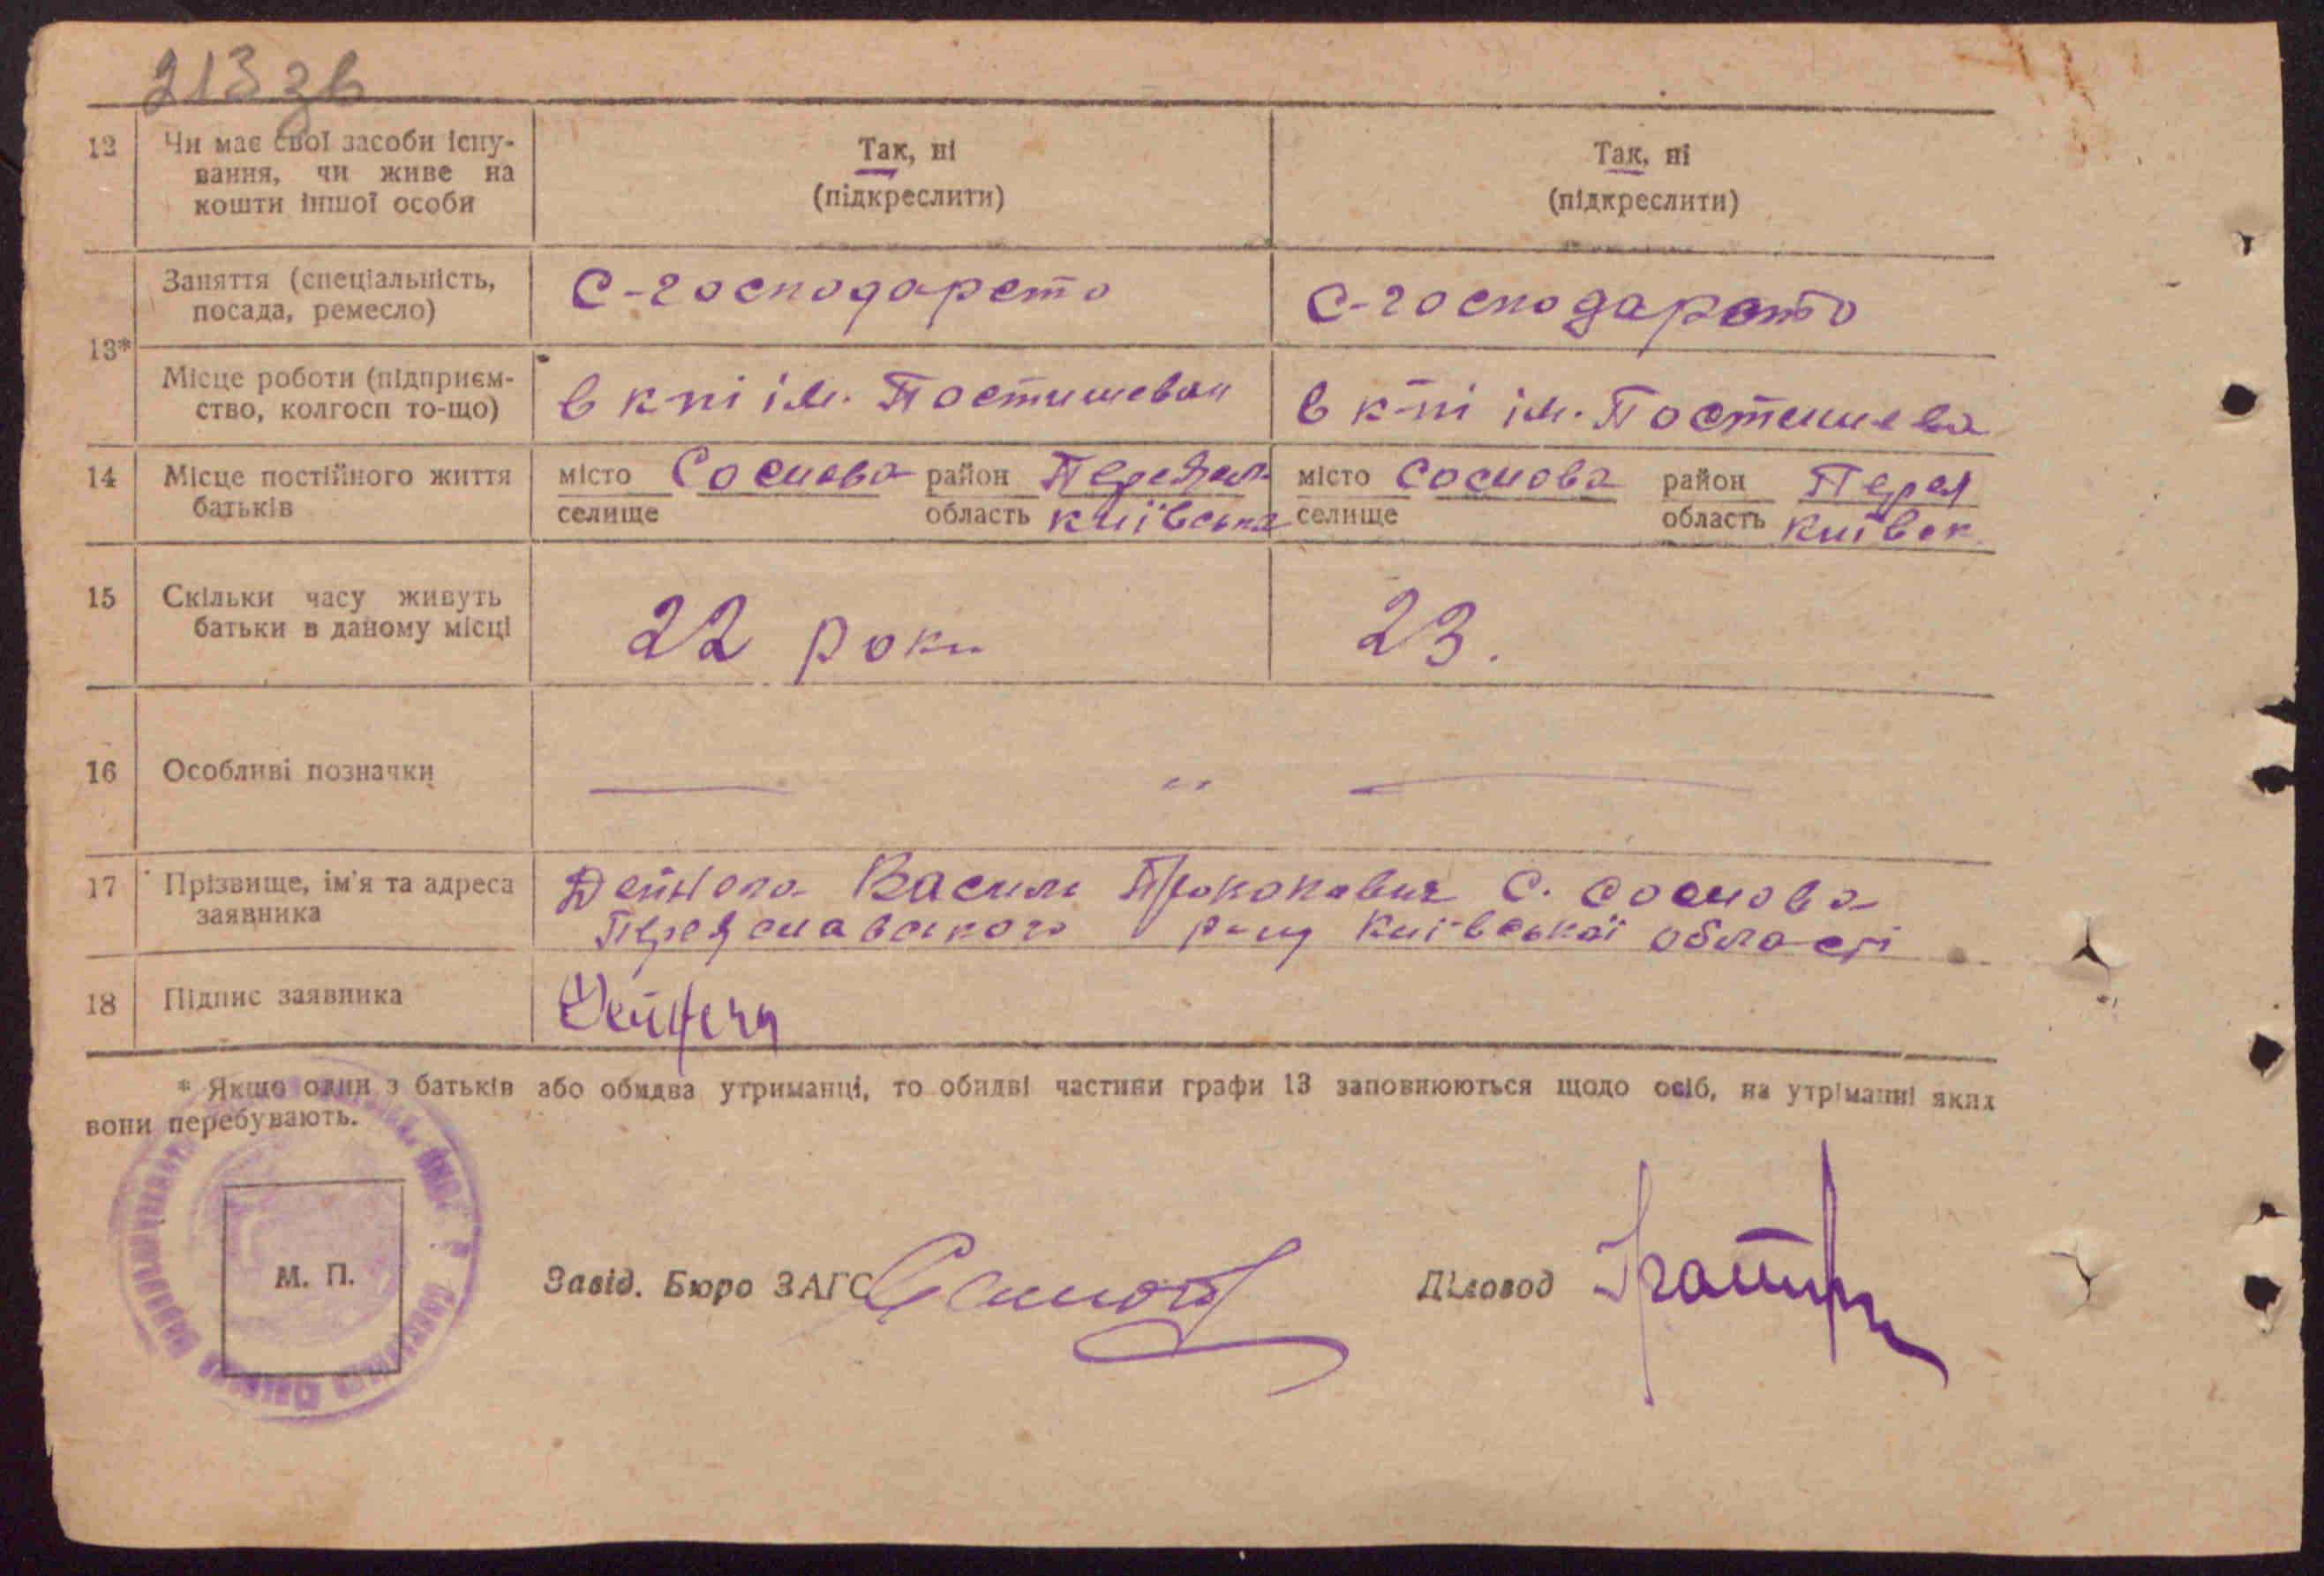 213 зв
12 Чи має свої засоби існу- Так, ні Так, ні
вання, чи живе на (підкреслити) (підкреслити)
кошти іншої особи
Заняття (спеціальність, С-господарство С-господарство
посада, ремесло)
13*
Місце роботи (підприєм- в к-пі ім. Постишева в к-пі ім. Постишева
ство, колгосп то-що)
14 Місце постійного життя місто Соснова район Переясл. місто Соснова район Перея
батьків селище область київська селище область київськ
15 Скільки часу живуть 22 роки 23.
батьки в даному місці
16 Особливі позначки — " —
17 Прізвище, ім'я та адреса Дейнега Василь Прокопавич С. Соснова
заявника Переяславського р-ну Київської області
18 Підпис заявника Дейнега
* Якщо один з батьків або обидва утриманці, то обидві частини графи 13 заповнюються щодо осіб, на утріманні яких
вони перебувають.
М. П. Завід. Бюро ЗАГС Діловод